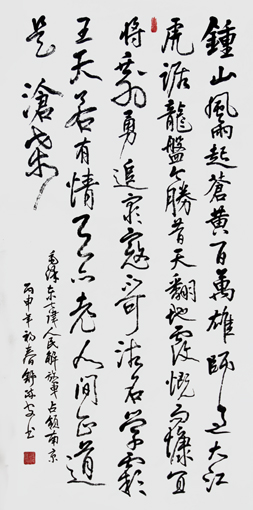 鍾山風雨起蒼黃百萬雄師過大江
虎踞龍盤今勝昔天翻地覆慨而慷宜
將剩勇追窮寇不可沽名學霸
王天若有情天亦老人間正道
是滄桑
毛澤东七律人民解放軍占領南京
丙申年初春舒